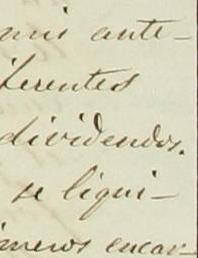 mis ante-
ferentes
dividendos.
se liqui-
meros encar-